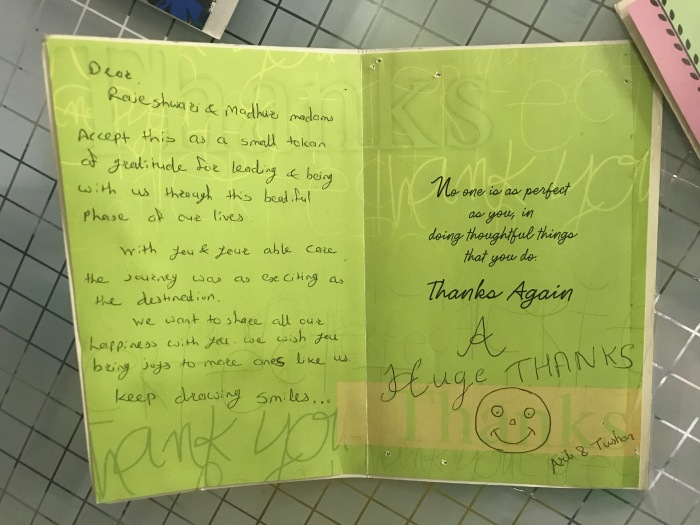 Dear,
Rajeshwari & Madhuri madams
Accept this as a small token
of gratitude for leading & being
with us through this beatiful
phase of our lives
With you & your able care
the journey was as exciting as
the destination.
We want to share all our
happiness with you. we wish you
bring joys to more ones like us.
keep drawing smiles...
Thanks
thank you
No one is as perfect
as you, in
doing thoughtful things
that you do.
Thanks Again
A
Huge THANKS
Thanks
& Tushar